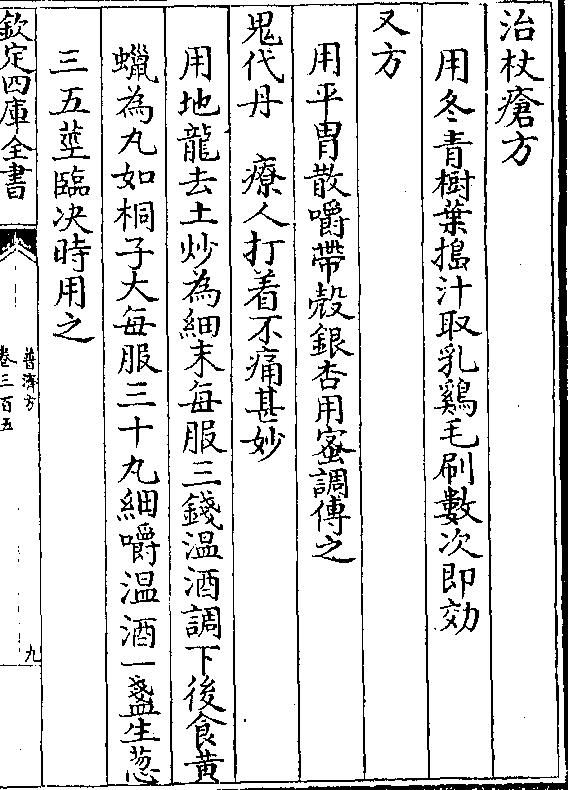 治杖瘡方
用冬青樹葉搗汁取乳鷄毛刷數次即効
又方
用平胃散嚼帶殻銀杏用蜜調傅之
鬼代丹　療人打着不痛甚妙
用地龍去土炒為細末每服三錢温酒調下後食黄
蠟為丸如桐子大每服三十丸細嚼温酒一盞生葱
三五莖臨决時用之
欽定四庫全書
普濟方
卷三百五
九